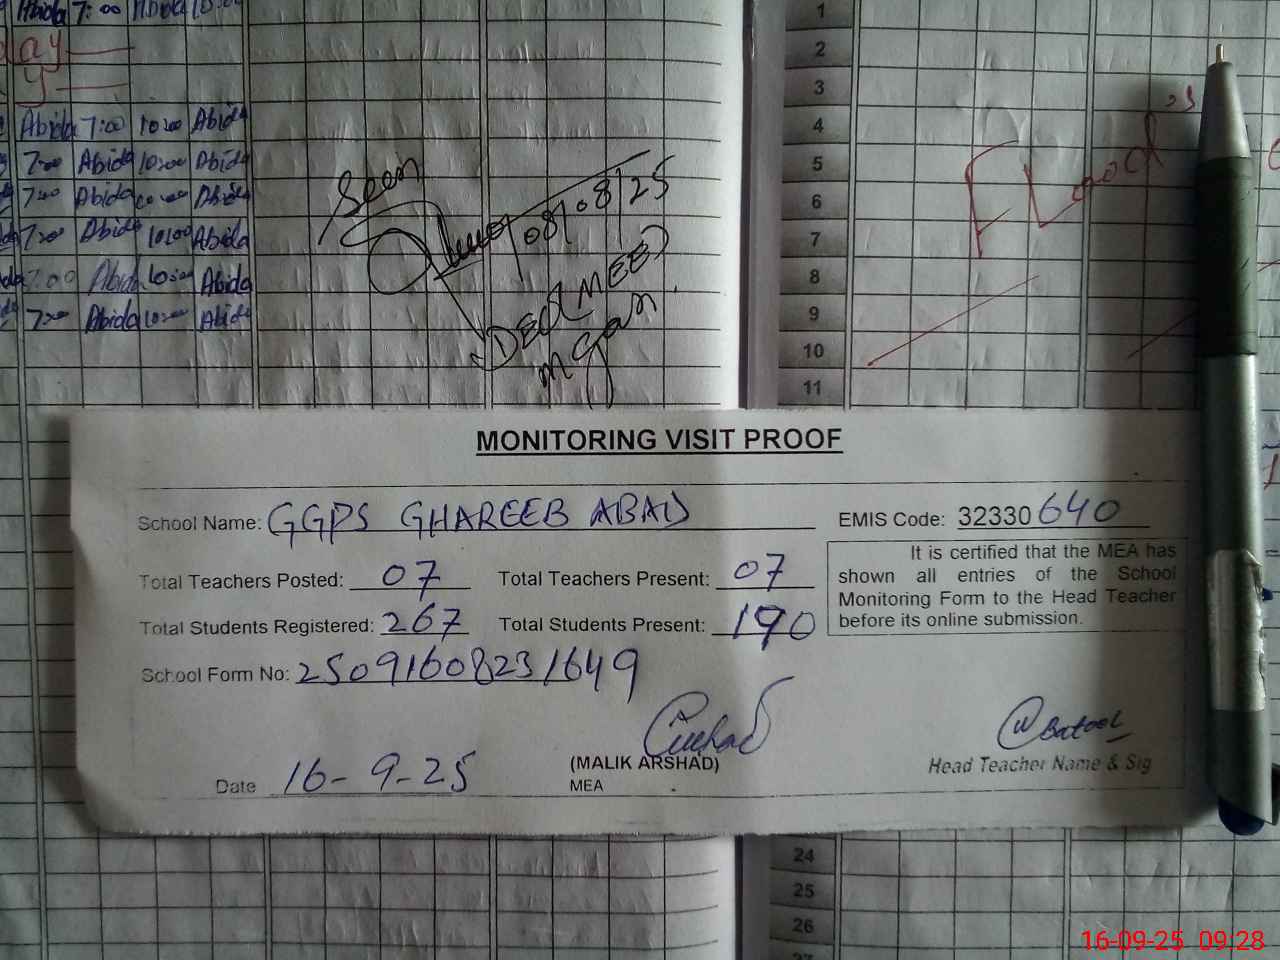 Abida 7:00 Abida 10:00
day
y
Abida 7:00 10:00 Abida
7:00 Abida 10:00 Abida
7:00 Abida 10:00 Abida
7:00 Abida 10:00 Abida
7:00 Abida 10:00 Abida
7:00 Abida 10:00 Abida
Seen
08/08/25
DEO (MEE)
M Garh
1
2
3
4
5
6
7
8
9
10
11
Flood
MONITORING VISIT PROOF
School Name: GGPS GHAREEB ABAD EMIS Code: 32330640
Total Teachers Posted: 07 Total Teachers Present: 07
Total Students Registered: 267 Total Students Present: 190
School Form No: 25091608231649
It is certified that the MEA has
shown all entries of the School
Monitoring Form to the Head Teacher
before its online submission.
Date 16-9-25
(MALIK ARSHAD)
MEA
Batool
Head Teacher Name & Sig
24
25
26
27
16-09-25 09:28